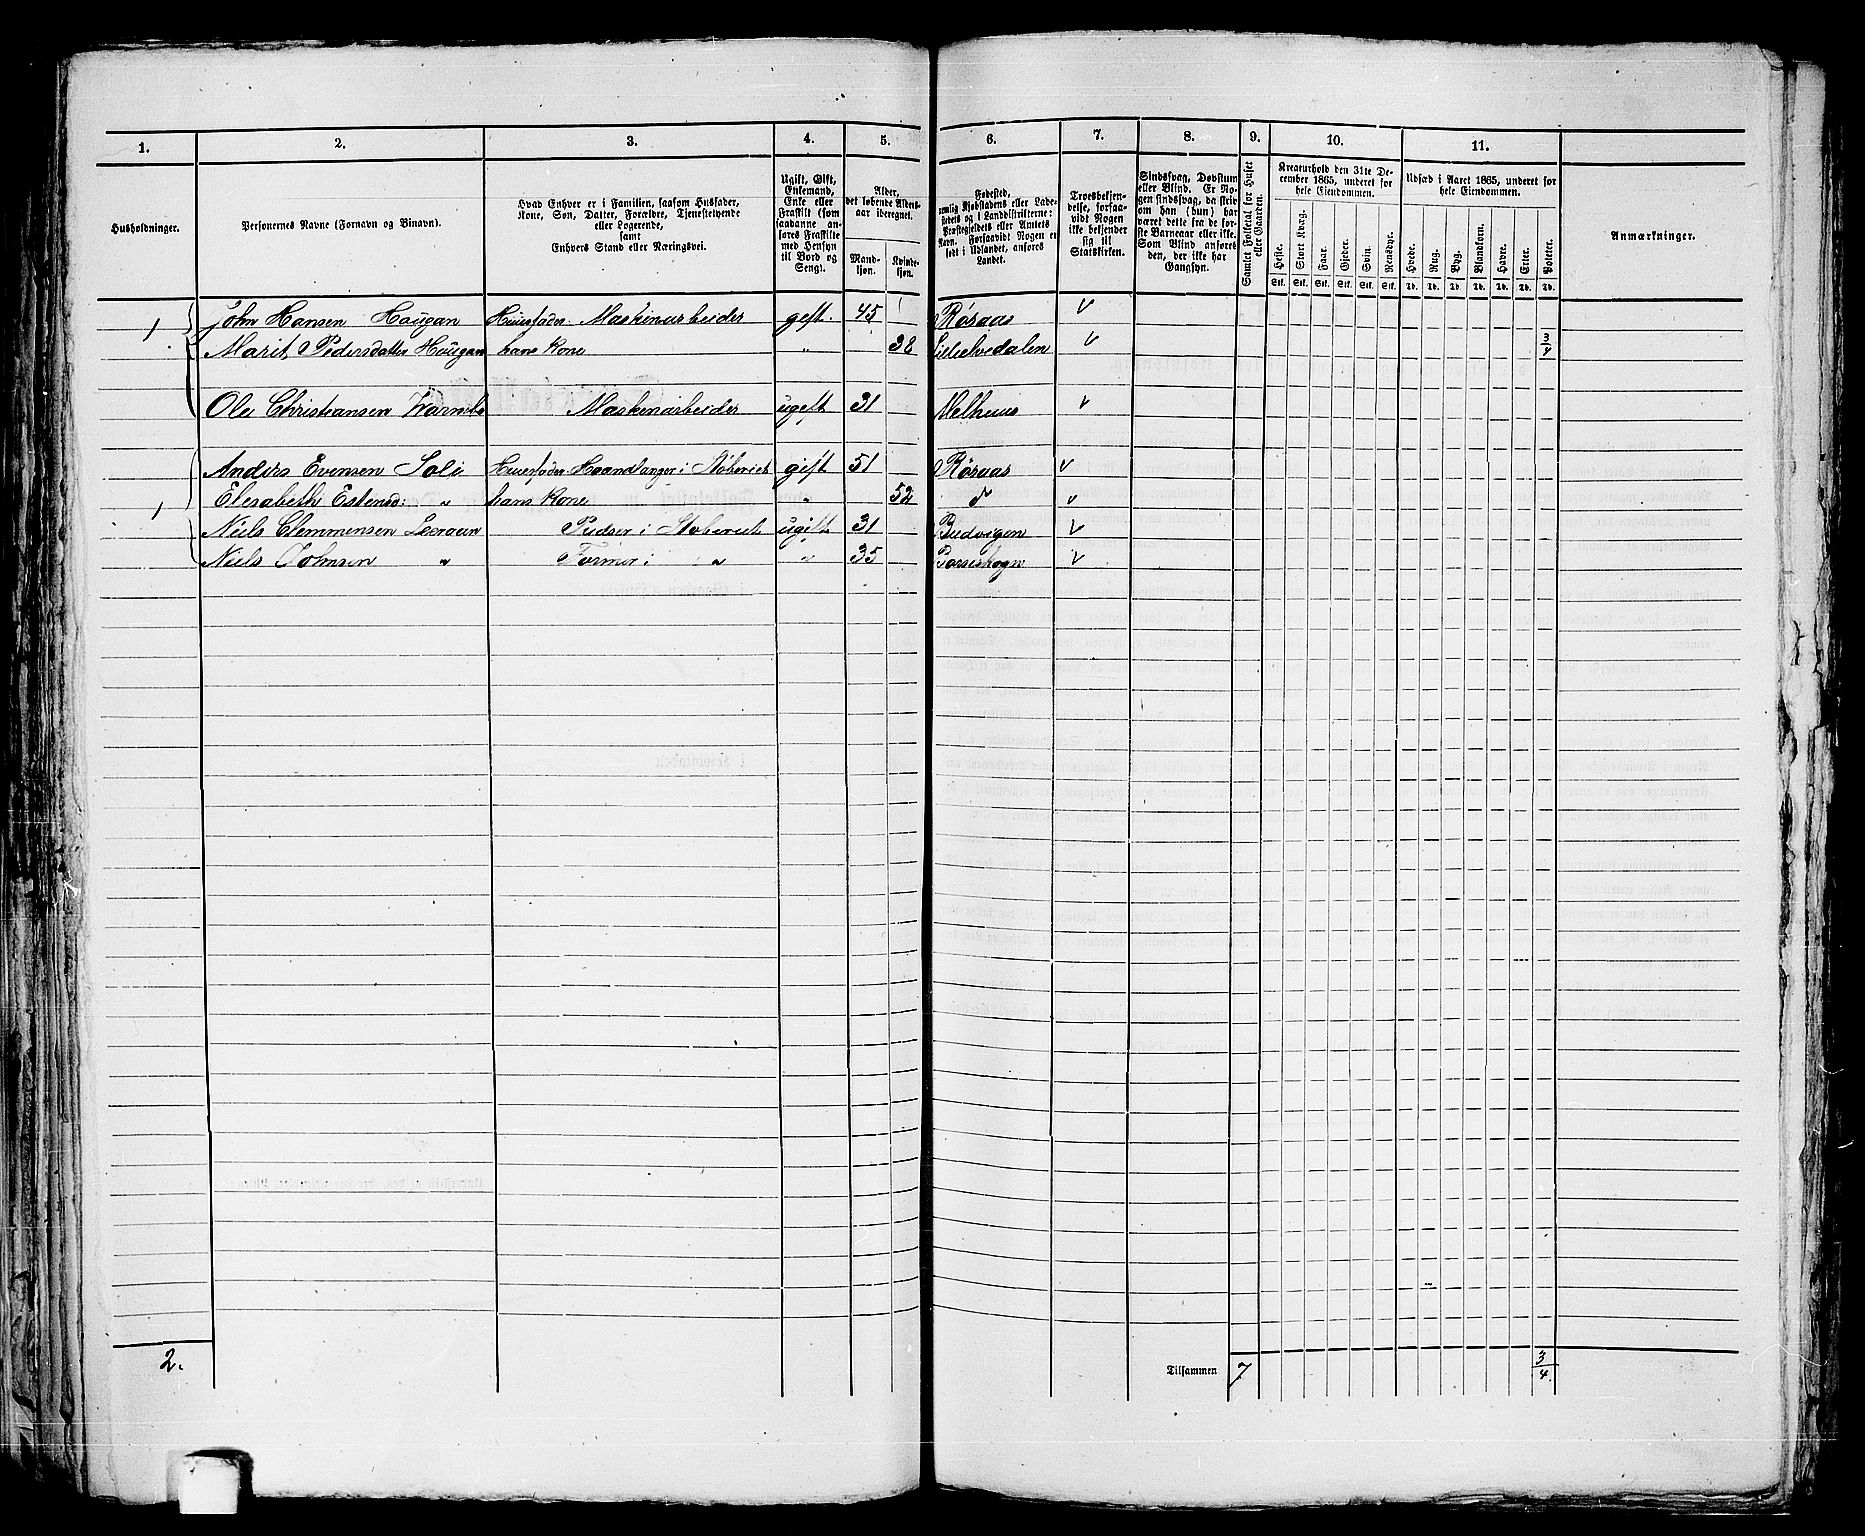 1. 2. 3. 4. 5. 6. 7. 8. 9. 10. 11.
Husholdninger.
Personernes Navne (Fornavn og Binavn).
Hvad Enhver er i Familien, saasom Husfader,
Kone, Søn, Datter, Forældre, Tjenestetyende
eller Logerende,
samt
Enhvers Stand eller Næringsvei.
Ugift, Gift,
Enkemand,
Enke eller
Fraskilt (som
saadanne an-
føres Fraskilte
med Hensyn
til Bord og
Seng).
Alder,
det løbende Alders-
aar iberegnet.
Mand-
kjøn.
Kvinde-
kjøn.
Fødested,
nemlig Kjøbstadens eller Lade-
stedets og i Landdistrikterne:
Præstegjeldets eller Annexets
Navn. Forsaavidt Nogen er
født i Udlandet, anføres
Landet.
Troesbekjen-
delse, forsaa-
vidt Nogen
ikke bekjender
sig til
Statskirken.
Sindssvag, Døvstum
eller Blind. Er No-
gen sindssvag, da skriv
om han (hun) har
været dette fra de før-
ste Barneaar eller ikke.
Som Blind anføres
den, der ikke har
Gangsyn.
Samlet Folketal for Huset
eller Gaarden.
Kreaturhold den 31te De-
cember 1865, underet for
hele Eiendommen.
Heste. Stort Kvæg. Faar. Gjeder. Svin. Rensdyr.
Stk. Stk. Stk. Stk. Stk. Stk.
Udsæd i Aaret 1865, underet for
hele Eiendommen.
Hvede. Rug. Byg. Blandkorn. Havre. Erter. Poteter.
Td. Td. Td. Td. Td. Td. Td.
Anmærkninger.
1 John Hansen Haugan Huusfader. Maskinarbeider gift. 45 Røraas
Marit Pedersdatter Haugan hans Kone " 38 Lilleelvedalen 3/4
Ole Christiansen Maskinarbeider ugift 31 Melhuus
Anders Evensen Soli Huusfader Haandlanger i Støberiet gift 51 Røraas
1 Elisabeth Estensd: " hans Kone " 52 d
Niels Clemmensen Leeraun Pudser i Støberiet ugift 31 Budvigen
Niels Johnsen " Former i " " 35
2. Tilsammen 7 3/4